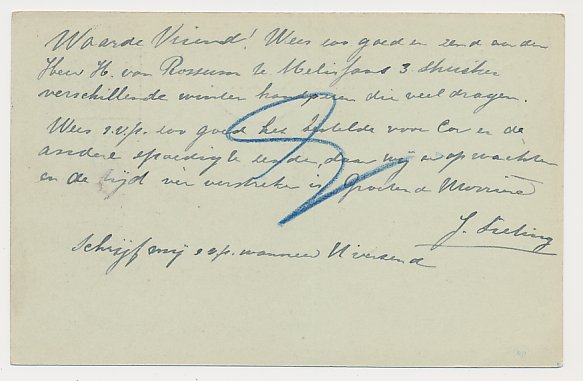 Waarde Vriend! Wees zoo goed en zend aan den
Heer H. van Rossum te Melissant 3 stuks
verschillende winter handperen die veel dragen.
Wees s.v.p. zoo goed het bestelde voor Cor en de
andere spoedig te zenden, daar wij er op wachten
en de tijd ver verstreken is. Groetend
J.
Schrijf mij s.v.p. wanneer U verzend